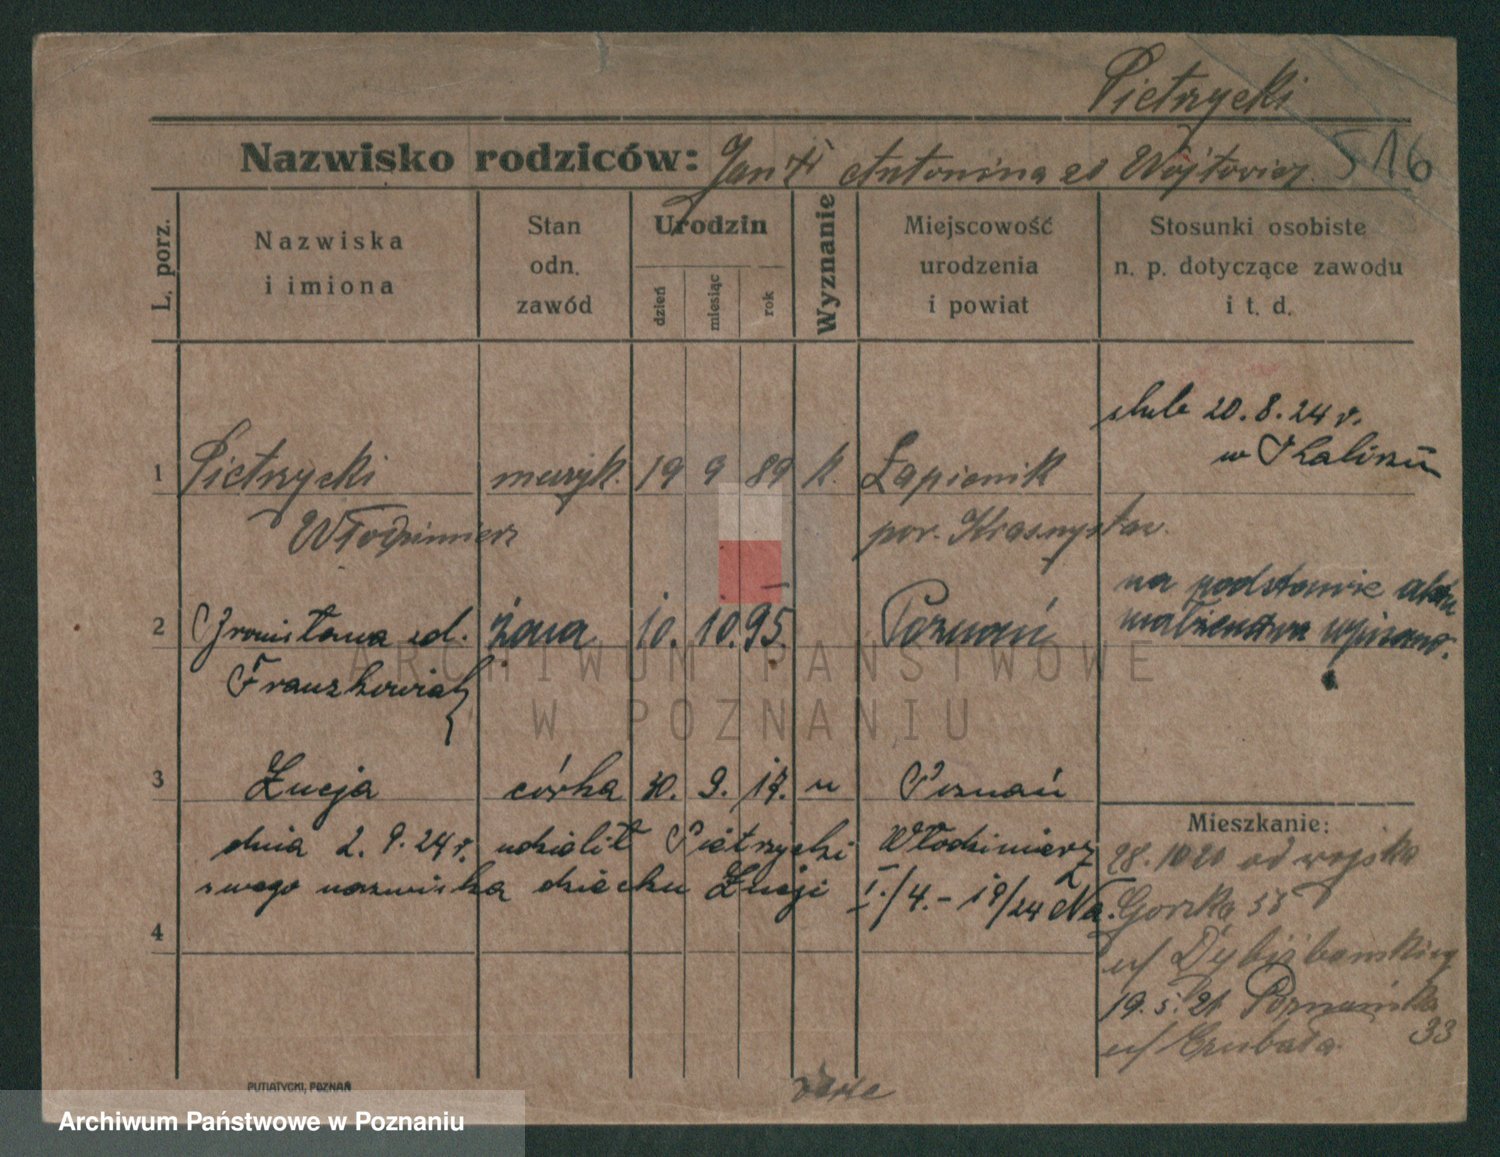 Pietrzycki
Nazwisko rodziców: Jan i Antonina zd Wójtowicz
516
L. porz.
Nazwiska
i imiona
Stan
odn.
zawód
Urodzin
dzień
miesiąc
rok
Wyznanie
Miejscowość
urodzenia
i powiat
Stosunki osobiste
n. p. dotyczące zawodu
i t. d.
ślub 20.8.24 r.
w Kaliszu
1 Pietrzycki muzyk. 19 9 89 k. Łapiennik
Włodzimierz pow. Krasnystaw
na podstawie aktu
małżeństwa wpisano.
2 Bronisława zd. żona 10. 10. 95. Poznań
Franzkowiak
3 Łucja córka 30. 9. 17. n Poznań
dnia 2. 9. 24 r. udzielił Pietrzycki Włodzimierz
swego nazwiska dziecku Łucji I./4. - 19/24 Na.
4
Mieszkanie:
28.10 20 od wojska
Gorzka
u/
19.5.21 Poznańska
33
u/
PUTIATYCKI, POZNAŃ
ARCHIWUM PAŃSTWOWE
W POZNANIU
Archiwum Państwowe w Poznaniu